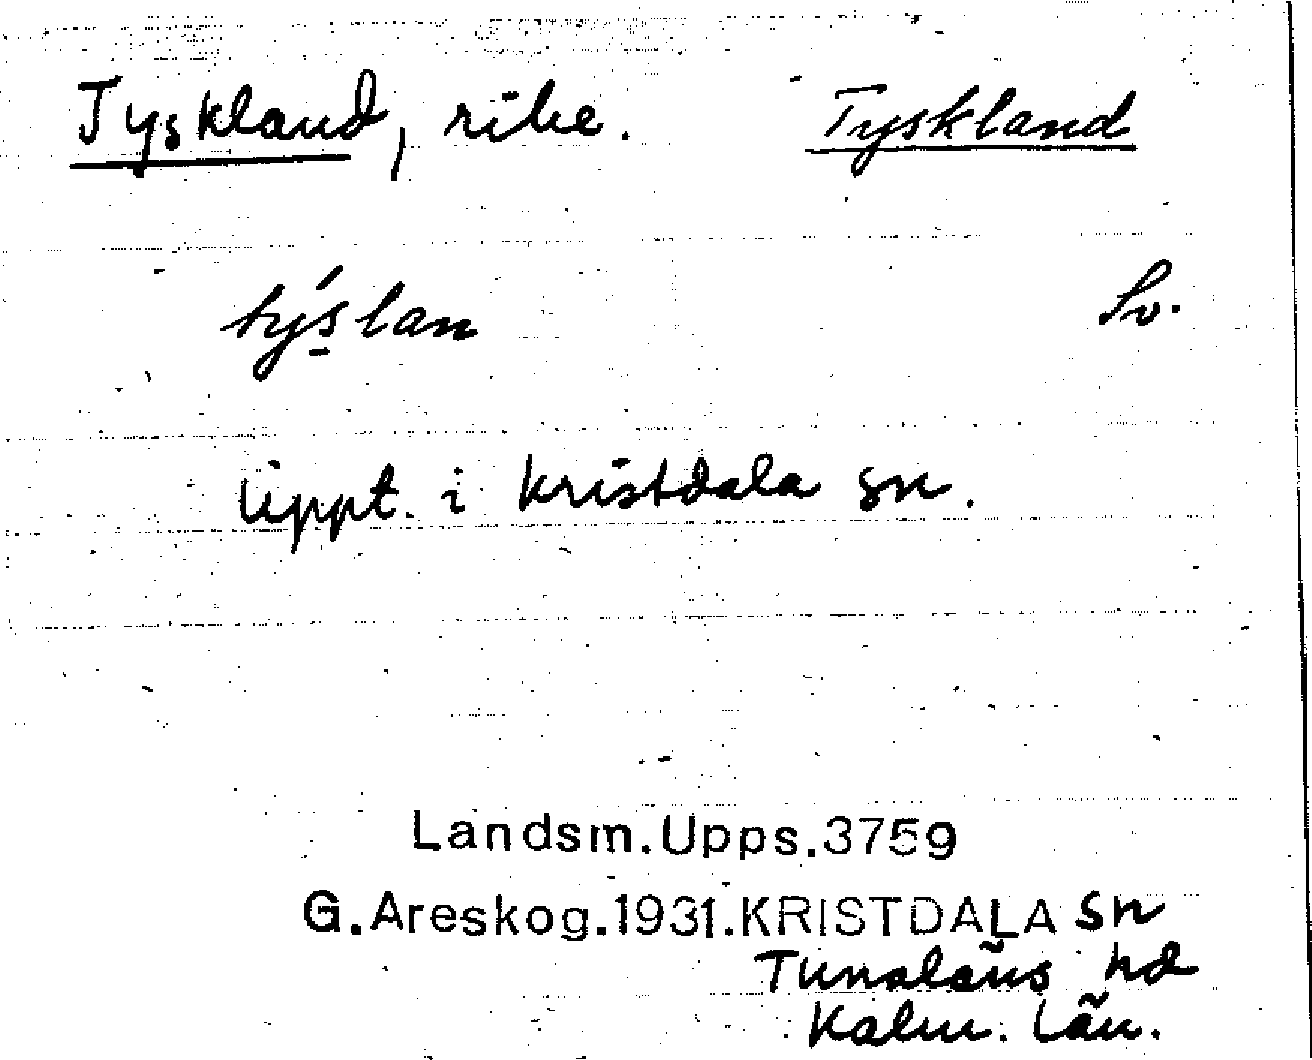 Tyskland, rike. Tyskland
ty´slan Sv.
Uppt. i Kristdala sn.
Landsm.Upps.3759
G.Areskog.1931.KRISTDALA sn
Tunaläns hd
Kalm. län.